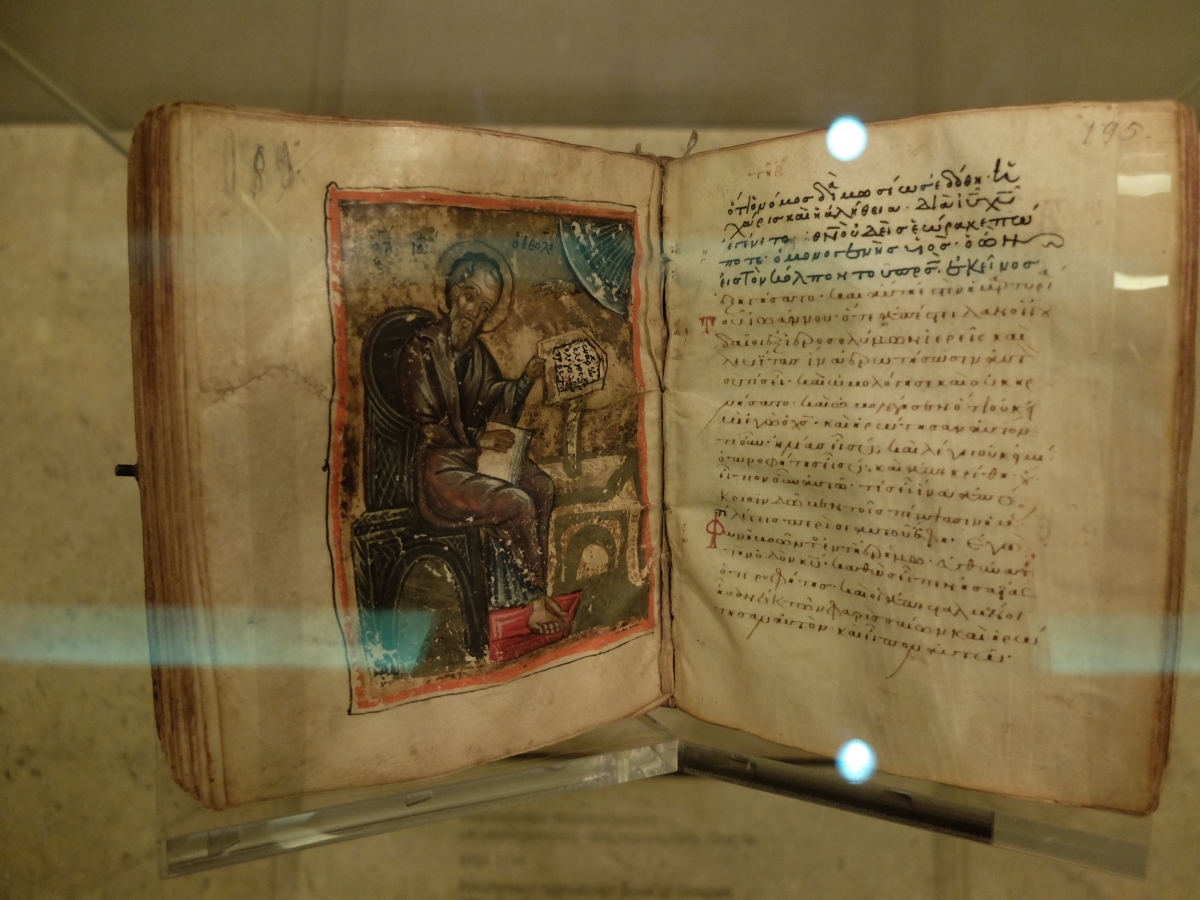 189
195.
ὅτι ὁ νόμος διὰ μωσέως ἐδόθη· ἡ
χάρις καὶ ἡ ἀλήθεια· διὰ ἰῦ χῦ
ἐγένετο· θν οὐδεὶς ἑώρακε πώ
ποτε· ὁ μονογενὴς υἱὸς· ὁ ὢν
εἰς τὸν κόλπον τοῦ πρς· ἐκεῖνος
ἐξηγήσατο· καὶ αὕτη ἐστὶν ἡ μαρτυρί
τοῦ ἰωάννου· ὅτε ἀπέστειλαν οἱ ἰου
δαῖοι ἐξ ἱεροσολύμων ἱερεῖς καὶ
λευΐτας ἵνα ἐρωτήσωσιν αὐτὸν
σὺ τίς εἶ· καὶ ὡμολόγησε καὶ οὐκ ἠρ
νήσατο· καὶ ὡμολόγησεν ὅτι οὐκ εἰ
μὶ ἐγὼ ὁ χς· καὶ ἠρώτησαν αὐτὸν
τί οὖν· ἠλίας εἶ σύ; καὶ λέγει οὐκ εἰμί
ὁ προφήτης εἶ σύ; καὶ ἀπεκρίθη· οὔ
εἶπον οὖν αὐτῷ· τίς εἶ ἵνα ἀπό
κρισιν δῶμεν τοῖς πέμψασιν ἡμᾶς
τί λέγεις περὶ σεαυτοῦ· ἔφη· ἐγὼ
φωνὴ βοῶντος ἐν τῇ ἐρήμῳ· εὐθύνατε
τὴν ὁδὸν κυ· καθὼς εἶπεν ἡσαΐας
ὁ προφήτης· καὶ οἱ ἀπεσταλμένοι
ἦσαν ἐκ τῶν φαρισαίων καὶ ἠρώ
τησαν αὐτὸν· καὶ εἶπον αὐτῷ·